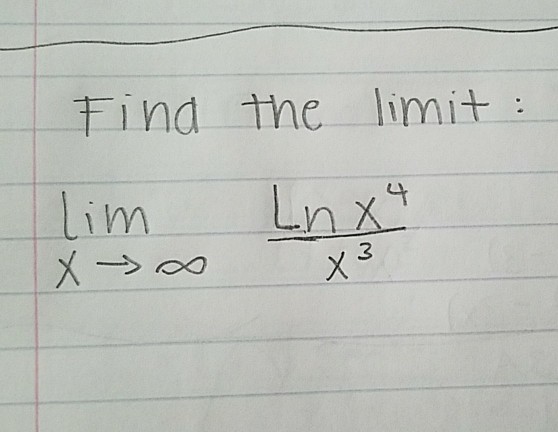 Find the limit :
lim Ln x⁴
x → ∞ x³